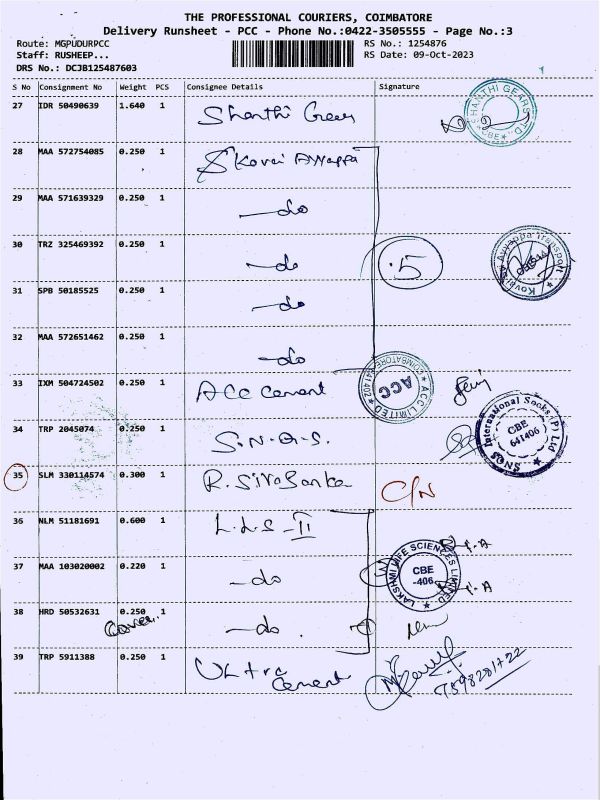 THE PROFESSIONAL COURIERS, COIMBATORE
Delivery Runsheet - PCC - Phone No.:0422-3505555 - Page No.:3
Route: MGPUDURPCC RS No.: 1254876
Staff: RUSHEEP... RS Date: 09-Oct-2023
DRS No.: DCJB125487603
S No Consignment No Weight PCS Consignee Details Signature
27 IDR 50490639 1.640 1 Shanthi Gears
SHANTHI GEARS LTD. CBE
28 MAA 572754085 0.250 1 S Kovai Ayyappa
29 MAA 571639329 0.250 1 - do
30 TRZ 325469392 0.250 1 - do .5
Kovai Ayyappa Transport
31 SPB 50185525 0.250 1 - do
32 MAA 572651462 0.250 1 - do
33 IXM 504724502 0.250 1 ACC Cement
ACC LIMITED COIMBATORE 641402 ACC
34 TRP 2045074 0.250 1 S.N.Q.S.
SNQS International Socks (P) Ltd CBE 641406
35 SLM 330114574 0.300 1 R. Siva Sanka C/N
36 NLM 51181691 0.600 1 L.L.S - II
37 MAA 103020002 0.220 1 - do
LAKSHMI LIFE SCIENCES LIMITED CBE -406
38 HRD 50532631 0.250 1 - do.
Cover.
39 TRP 5911388 0.250 1 Ultra
Cement